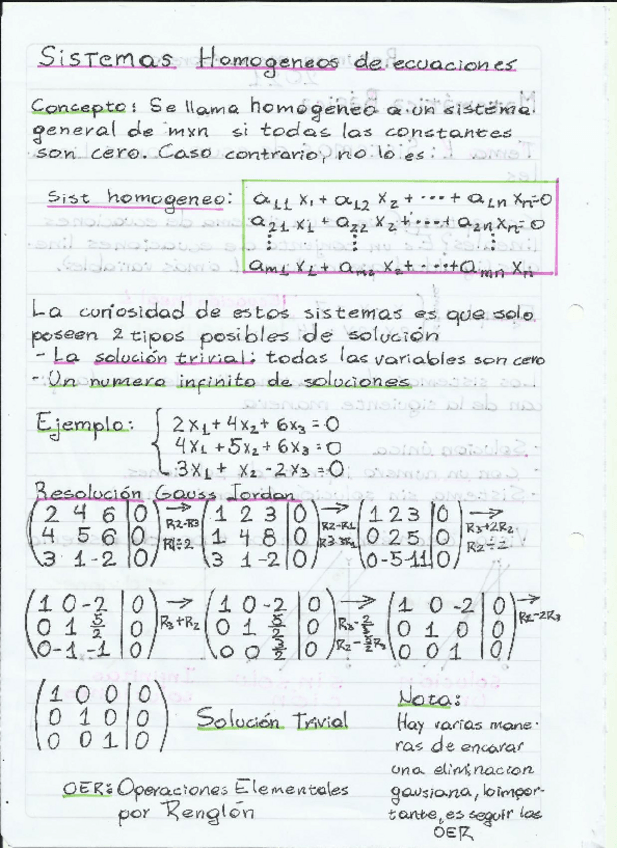 Sistemas Homogeneos de ecuaciones
Concepto: Se llama homogeneo a un sistema
general de mxn si todas las constantes
son cero. Caso contrario, no lo es:
Sist homogeneo: a11 x1 + a12 x2 + ... + a1n xn = 0
a21 x1 + a22 x2 + ... + a2n xn = 0
⋮ ⋮ ⋮
am1 x1 + am2 x2 + ... + amn xn
La curiosidad de estos sistemas es que solo
poseen 2 tipos posibles de solución
- La solución trivial: todas las variables son cero
- Un numero infinito de soluciones
Ejemplo: { 2x1 + 4x2 + 6x3 = 0
4x1 + 5x2 + 6x3 = 0
3x1 + x2 - 2x3 = 0
Resolución Gauss Jordan
(2 4 6 | 0) → (1 2 3 | 0) → (1 2 3 | 0) →
(4 5 6 | 0) R2-R3 (1 4 8 | 0) R2-R1 (0 2 5 | 0) R3+2R2
(3 1 -2 | 0) R1÷2 (3 1 -2 | 0) R3-3R1 (0 -5 -11 | 0) R2÷2
(1 0 -2 | 0) → (1 0 -2 | 0) → (1 0 -2 | 0) → R1-2R3
(0 1 5/2 | 0) R3+R2 (0 1 5/2 | 0) (0 1 0 | 0)
(0 -1 -1 | 0) (0 0 5/2 | 0) R2-5/2R3 (0 0 1 | 0)
(1 0 0 | 0)
(0 1 0 | 0) Solución Trivial
(0 0 1 | 0)
Nota:
Hay varias mane-
ras de encarar
una eliminacion
gausiana, lo impor-
tante, es seguir las
OER
OER: Operaciones Elementales
por Renglón